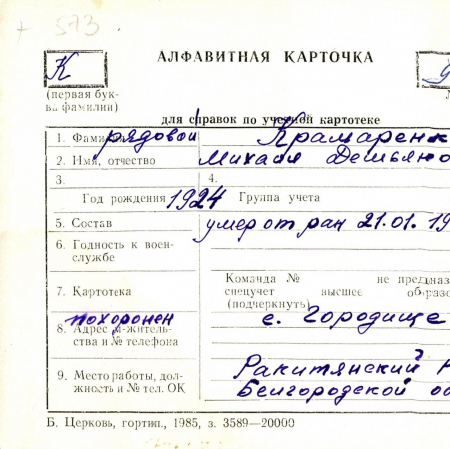 + 573
АЛФАВИТНАЯ КАРТОЧКА
К
(первая бук-
ва фамилии)
для справок по учетной картотеке
1. Фамилия рядовой Крамаренк
2. Имя, отчество Михаил Демьяно
3. 4.
Год рождения 1924 Группа учета
5. Состав умер от ран 21.01.19
6. Годность к воен-
службе
Команда № не предназ
7. Картотека спецучет высшее образо
(подчеркнуть)
похоронен с. Городище
8. Адрес м-житель-
ства и № телефона
Ракитянский
9. Место работы, дол-
жность и № тел. ОК
Белгородской об
Б. Церковь, гортип., 1985, з. 3589—20000